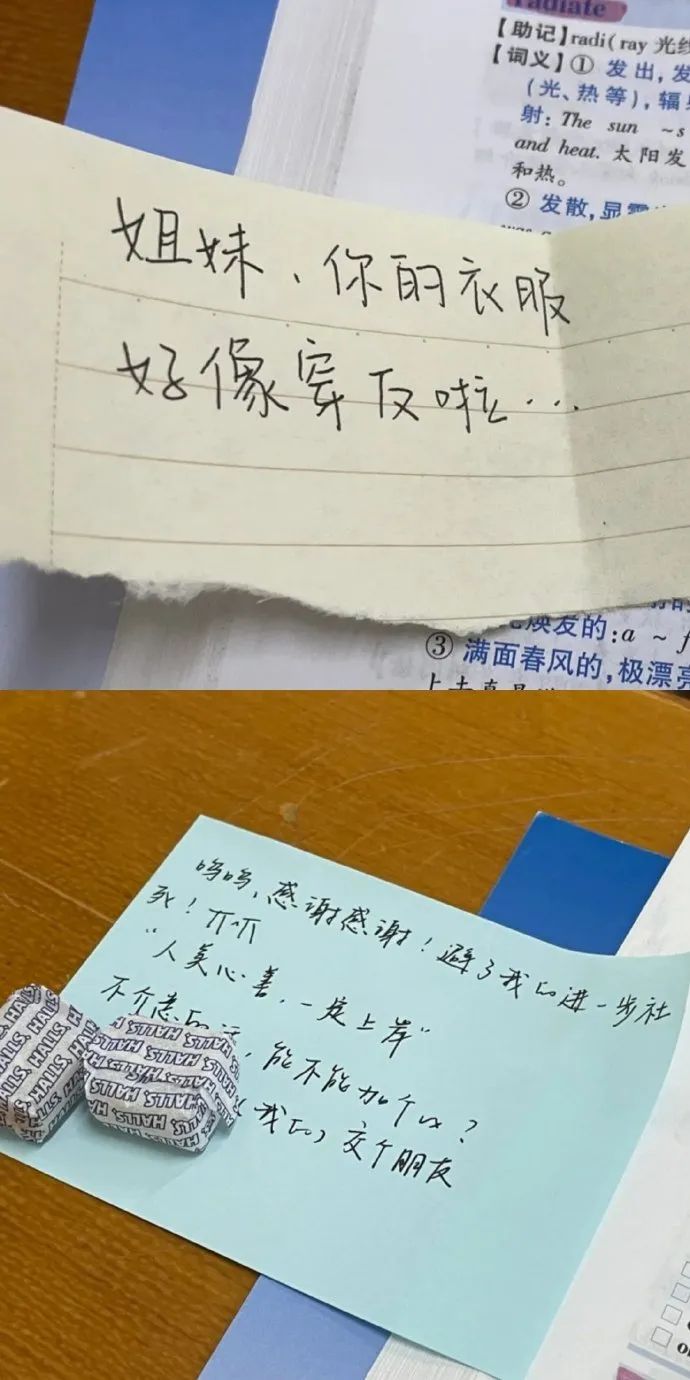 radiate
【助记】radi(ray 光线
【词义】① 发出,发
(光、热等),辐射
射: The sun ~s
and heat. 太阳发
和热。
② 发散,显露
姐妹、你的衣服
好像穿反啦…
焕发的:a ~ f
③ 满面春风的,极漂亮
呜呜、感谢感谢!避了我的进一步社
死!π^π
"人美心善,一定上岸"
不介意的话,能不能加个v?
(我的)交个朋友
HALLS HALLS HALLS HALLS
HALLS HALLS HALLS HALLS